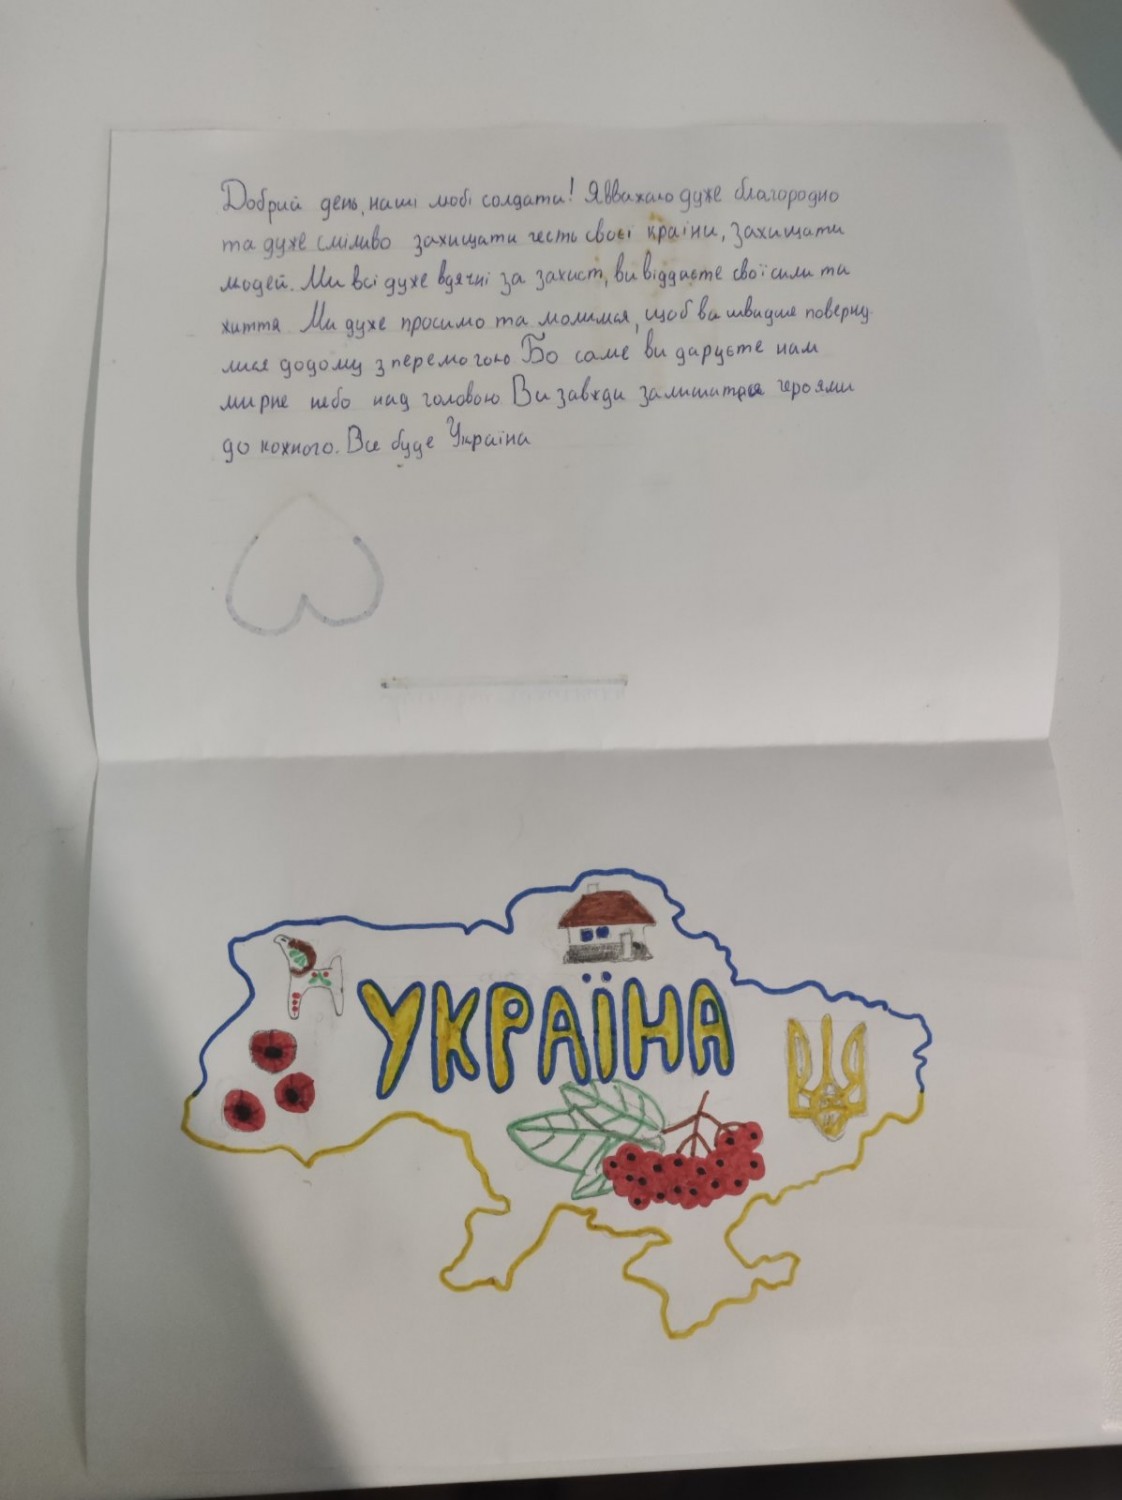 Добрий день, наші любі солдати! Я вважаю дуже благородно
та дуже сміливо захищати честь своєї країни, захищати
людей. Ми всі дуже вдячні за захист, ви віддаєте свої сили та
життя Ми дуже просимо та молимся, щоб ви швидше поверну
лися додому з перемогою Бо саме ви даруєте нам
мирне небо над головою Ви завжди залишитеся героями
до кожного. Все буде Україна
УКРАЇНА